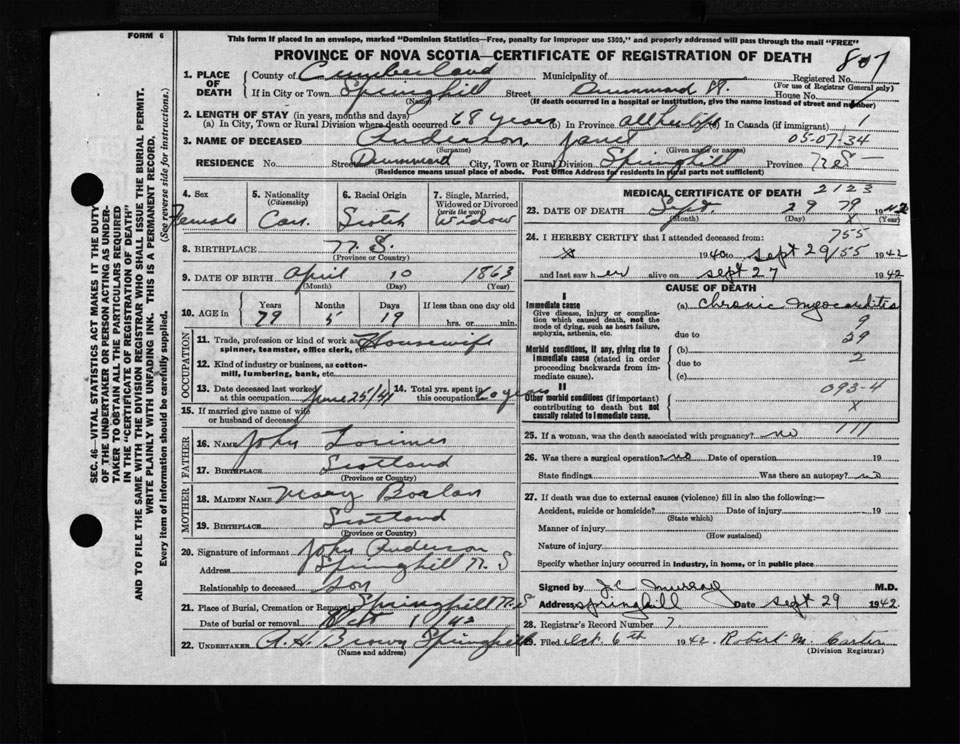 FORM 6
This form if placed in an envelope, marked "Dominion Statistics—Free, penalty for improper use $300," and properly addressed will pass through the mail "FREE"
PROVINCE OF NOVA SCOTIA—CERTIFICATE OF REGISTRATION OF DEATH
SEC. 46—VITAL STATISTICS ACT MAKES IT THE DUTY
OF THE UNDERTAKER OR PERSON ACTING AS UNDER-
TAKER TO OBTAIN ALL THE PARTICULARS REQUIRED
IN THE "CERTIFICATE OF REGISTRATION OF DEATH"
AND TO FILE THE SAME WITH THE DIVISION REGISTRAR WHO SHALL ISSUE THE BURIAL PERMIT.
WRITE PLAINLY WITH UNFADING INK. THIS IS A PERMANENT RECORD.
Every item of information should be carefully supplied. (See reverse side for instructions.)
1. PLACE OF DEATH County of Cumberland Municipality of Registered No. 807
(For use of Registrar General only)
If in City or Town Springhill Street Drummond St. House No.
(Name) (If death occurred in a hospital or institution, give the name instead of street and number)
2. LENGTH OF STAY (in years, months and days)
(a) In City, Town or Rural Division where death occurred 68 years (b) In Province all her life In Canada (if immigrant) 1
3. NAME OF DECEASED Anderson, Jane 05-07/34
(Surname) (Given name or names)
RESIDENCE No. Street Drummond City, Town or Rural Division Springhill Province N.S.
(Residence means usual place of abode. Post Office Address for residents in rural parts not sufficient)
4. Sex Female
5. Nationality (Citizenship) Can.
6. Racial Origin Scotch
7. Single, Married, Widowed or Divorced (write the word) Widow
8. BIRTHPLACE N.S.
(Province or Country)
9. DATE OF BIRTH April 10 1863
(Month) (Day) (Year)
10. AGE in Years 79 Months 5 Days 19 If less than one day old
hrs. or min.
OCCUPATION
11. Trade, profession or kind of work as spinner, teamster, office clerk, etc. Housewife
12. Kind of industry or business, as cotton-mill, lumbering, bank, etc.
13. Date deceased last worked at this occupation June 25/41 14. Total yrs. spent in this occupation 60 years
15. If married give name of wife or husband of deceased
FATHER
16. NAME John Lorimer
17. BIRTHPLACE Scotland
(Province or Country)
MOTHER
18. MAIDEN NAME Mary
19. BIRTHPLACE Scotland
(Province or Country)
20. Signature of informant John Anderson
Address Springhill N.S
Relationship to deceased son
21. Place of Burial, Cremation or Removal Springhill N.S
Date of burial or removal Oct 1/42
22. UNDERTAKER A. H. Brown Springhill
(Name and address)
MEDICAL CERTIFICATE OF DEATH 2123
23. DATE OF DEATH Sept. 29 79 1942
(Month) (Day) X (Year)
24. I HEREBY CERTIFY that I attended deceased from: 755
X 1940 to Sept 29/55 1942
and last saw her alive on Sept 27 1942
CAUSE OF DEATH
I
Immediate cause (a) Chronic Myocarditis
Give disease, injury or complication which caused death, not the mode of dying, such as heart failure, asphyxia, asthenia, etc.
9
due to 29
Morbid conditions, if any, giving rise to immediate cause (stated in order proceeding backwards from immediate cause). (b) 2
due to
(c)
II 093-4
Other morbid conditions (if important) contributing to death but not causally related to immediate cause. X
111
25. If a woman, was the death associated with pregnancy? no
26. Was there a surgical operation? no Date of operation 19
State findings Was there an autopsy? no
27. If death was due to external causes (violence) fill in also the following:—
Accident, suicide or homicide? Date of injury 19
(State which)
Manner of injury
(How sustained)
Nature of injury
Specify whether injury occurred in industry, in home, or in public place
Signed by J.C Murray M.D.
Address Springhill Date Sept 29 1942
28. Registrar's Record Number 7
29. Filed Oct. 6th 1942 Robert M. Carter
(Division Registrar)